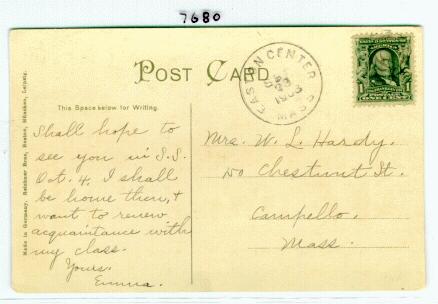 7680
POST CARD
EASTON CENTER
MASS
1
This Space below for Writing.
Made in Germany, Reichner Bros., Boston, München, Leipzig.
Shall hope to
see you in S.S.
Oct. 4, I shall
be home then, +
want to renew
acquaintance with
my class.
Yours,
Emma.
Mrs. W. L. Hardy,
Chestnut St.
Campello,
Mass.